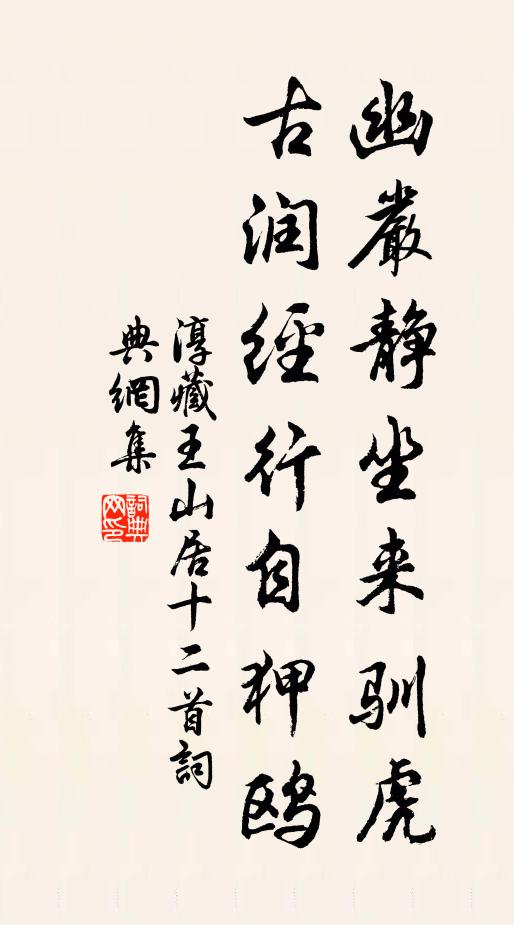 幽嚴静坐来驯虎
古润經行自狎鸥
淳藏王山居十二首詞
典網集
詞典網印